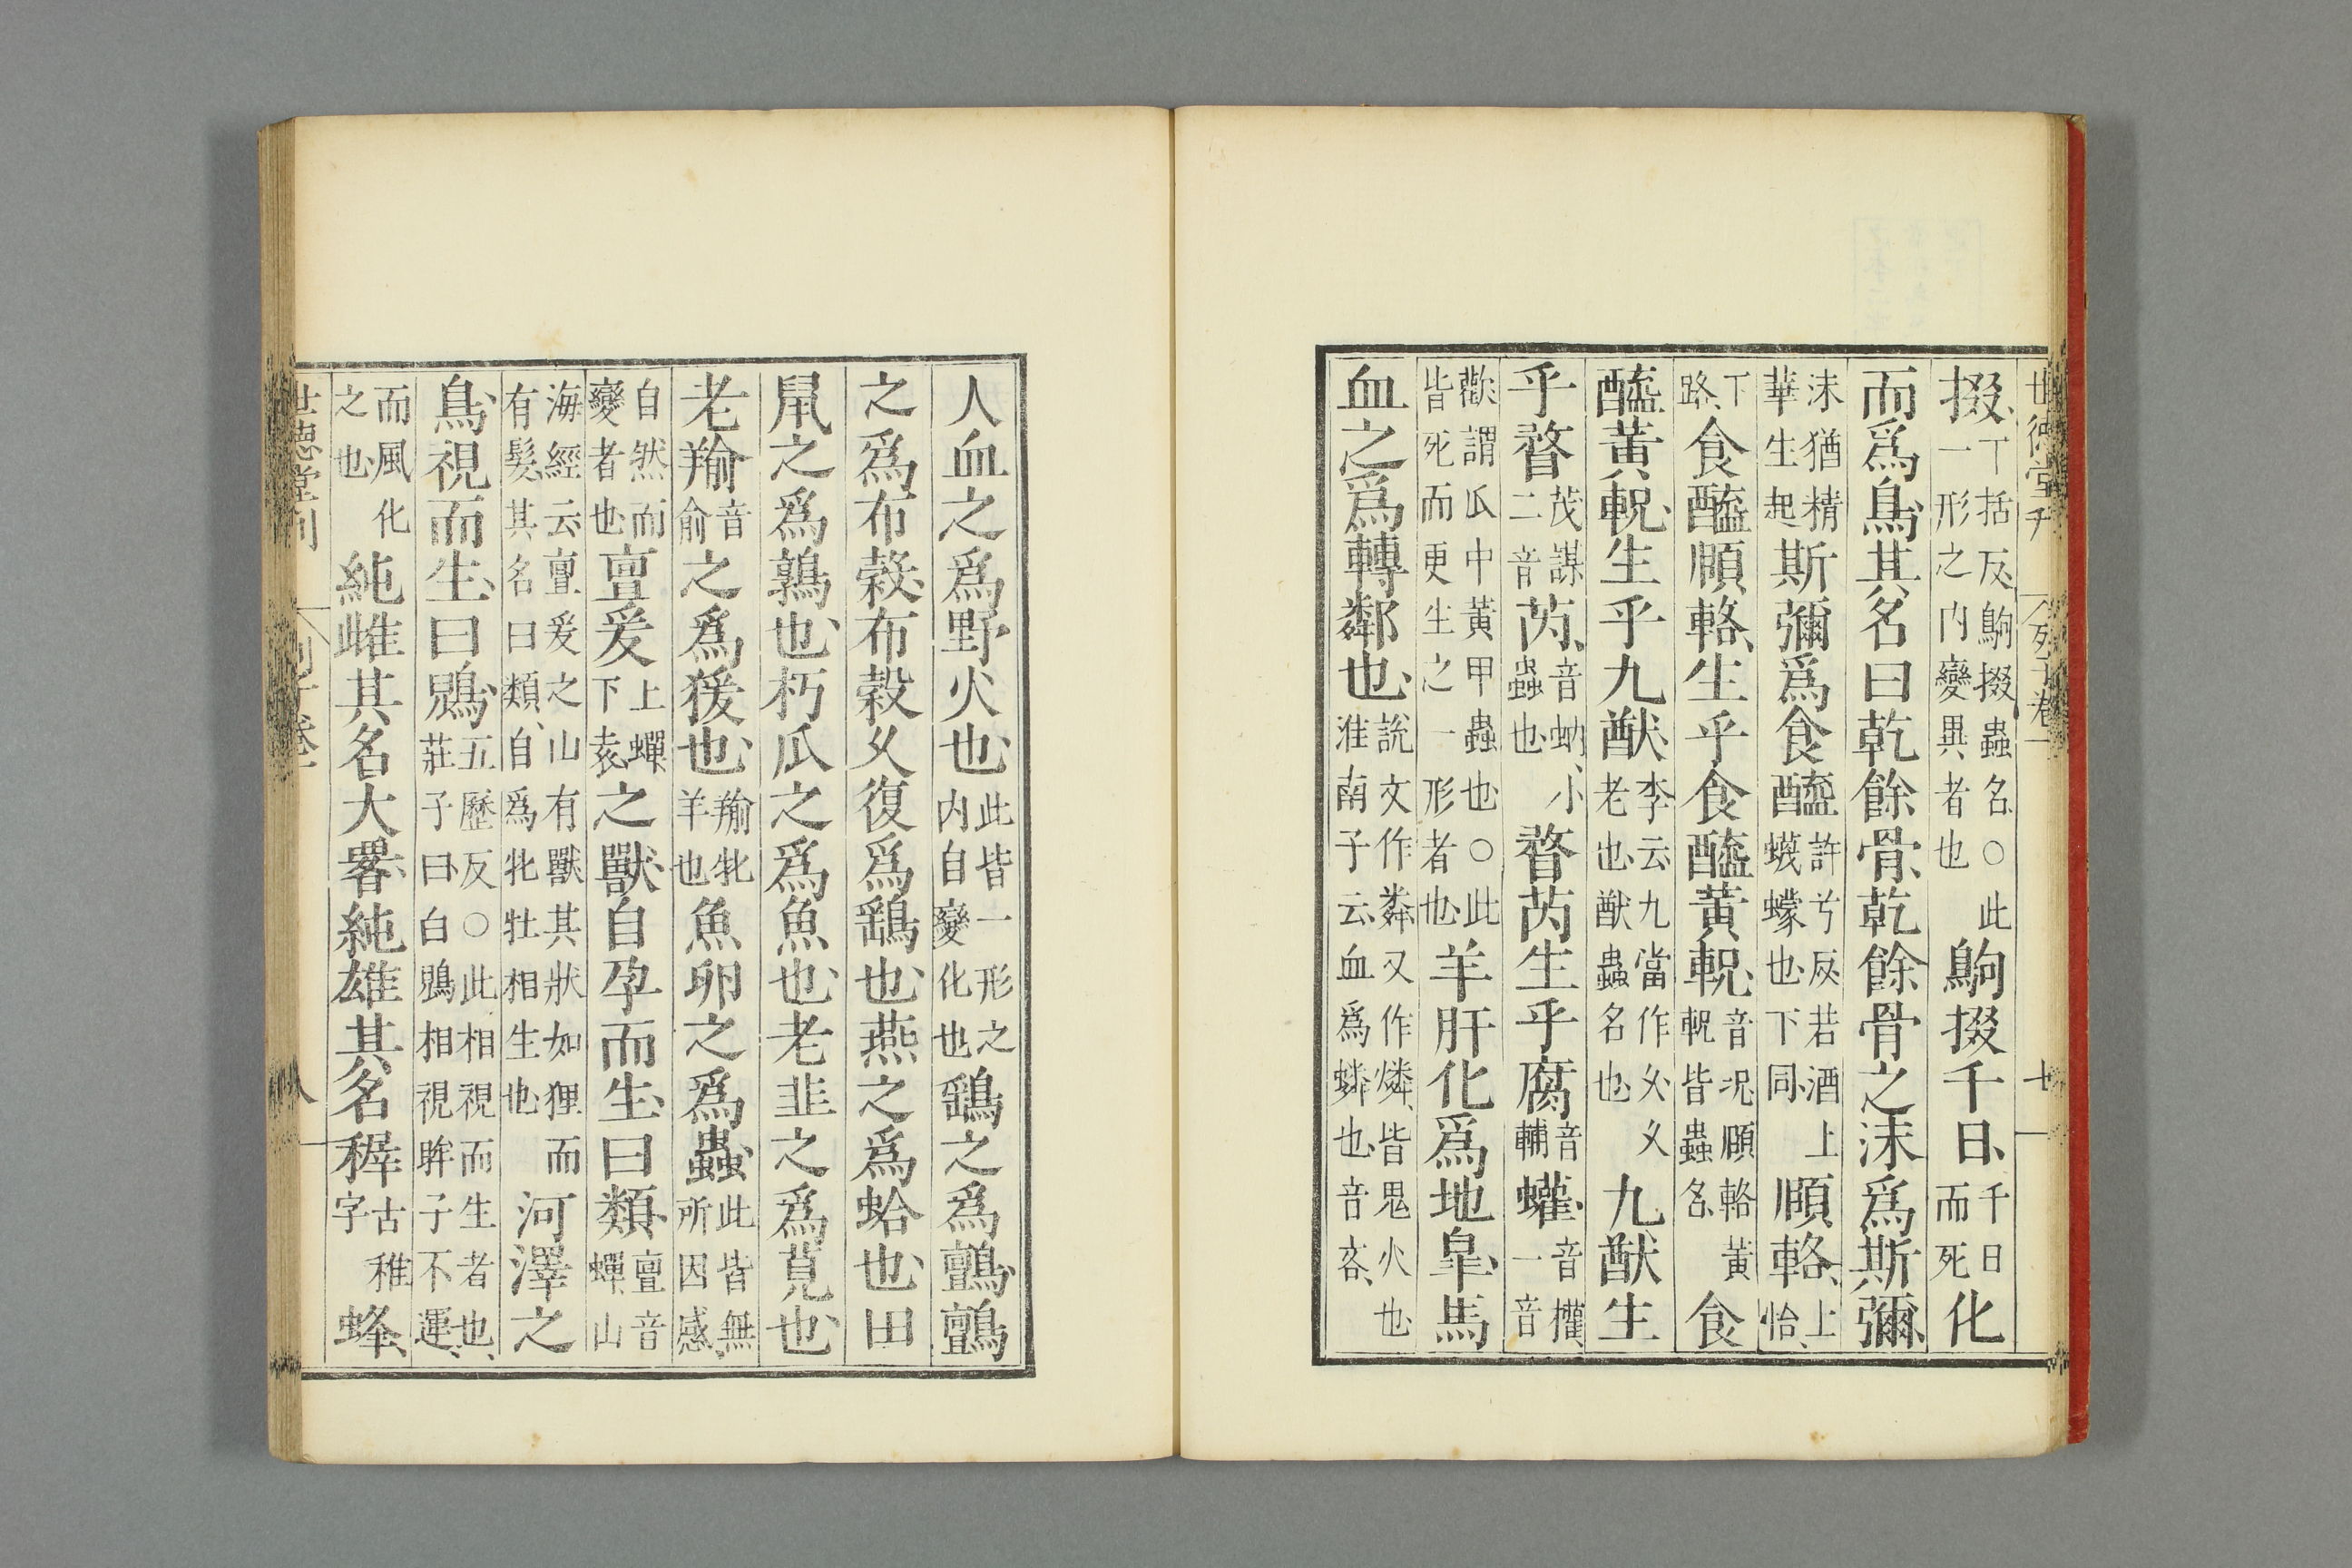 世德堂刊 列子卷一 七
掇丁括反鴝掇蟲名○此一形之内變異者也鴝掇千日千日而死化
而爲鳥其名曰乾餘骨乾餘骨之沫爲斯彌
沫猶精華生起斯彌爲食醯許兮反若酒上蠛蠓也下同頤輅上怡
下路食醯頤輅生乎食醯黄軦音况頤輅黄軦皆蟲名食
醯黄軦生乎九猷李云九當作久久老也猷蟲名也九猷生
乎瞀茂謀二音芮音蚋小蟲也瞀芮生乎腐音輔蠸音權一音
歡謂瓜中黄甲蟲也○此皆死而更生之一形者也羊肝化爲地臯馬
血之爲轉鄰也說文作粦又作燐皆鬼火也淮南子云血爲燐也音吝
人血之爲野火也此皆一形之内自變化也鷂之爲鸇鸇
之爲布穀布穀久復爲鷂也燕之爲蛤也田
鼠之爲鶉也朽瓜之爲魚也老韭之爲莧也
老羭音俞之爲猨也羭牝羊也魚卵之爲蟲此皆無所因感
自然而變者也亶爰上蟬下袁之獸自孕而生曰類亶音蟬山
海經云亶爰之山有獸其狀如狸而有髮其名曰類自爲牝牡相生也河澤之
鳥視而生曰鶂五歷反○此相視而生者也莊子曰白鶂相視眸子不運
而風化之也純雌其名大䐁純雄其名穉古稚字蜂
世德堂刊 列子卷一 八